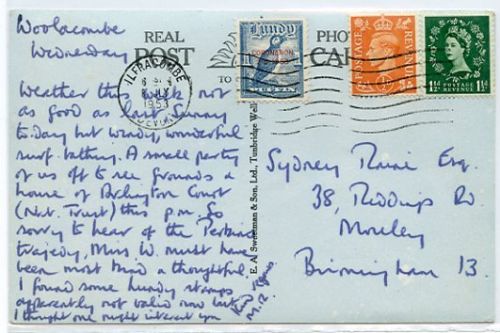 Woolacombe
Wednesday
Weather this week not
as good as last. Sunny
to-day but windy, wonderful
surf-bathing. A small party
of us off to see grounds &
house of Arlington Court
(Nat. Trust) this p.m. So
sorry to hear of the Perkins
tragedy, Miss W. must have
been most kind & thoughtful.
I found some Lundy stamps
apparently not valid now but
I thought one might interest you
Kind
M.R.
REAL
POST
PHOTO
CARD
TO
E. A. Sweetman & Son, Ltd., Tunbridge Wells
ILFRACOMBE
1953
DEVON
Lundy
CORONATION
PUFFIN
POSTAGE
REVENUE
1½D
POSTAGE
REVENUE
1½D
Sydney Raine Esq.
38, Reddings Rd.
Moseley
Birmingham 13.